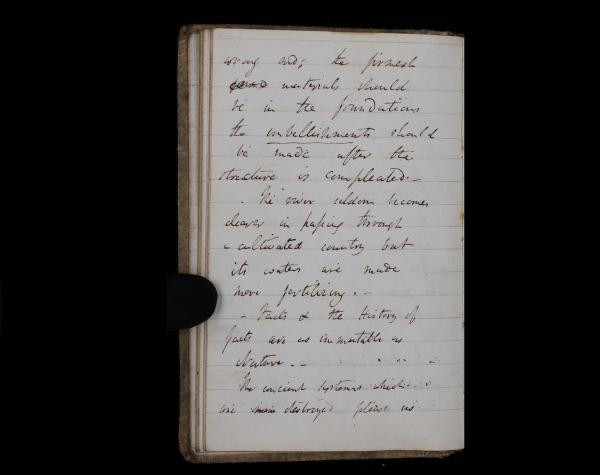 wrong end; the firmest
materials should
be in the foundations
the embellishments should
be made after the
structure is compleated. -
. The river seldom becomes
clearer in passing through
a cultivated country but
its waters are made
more fertilizing. -
- Facts & the History of
facts are as immutable as
Nature. -
The ancient systems which
are destroyed please us